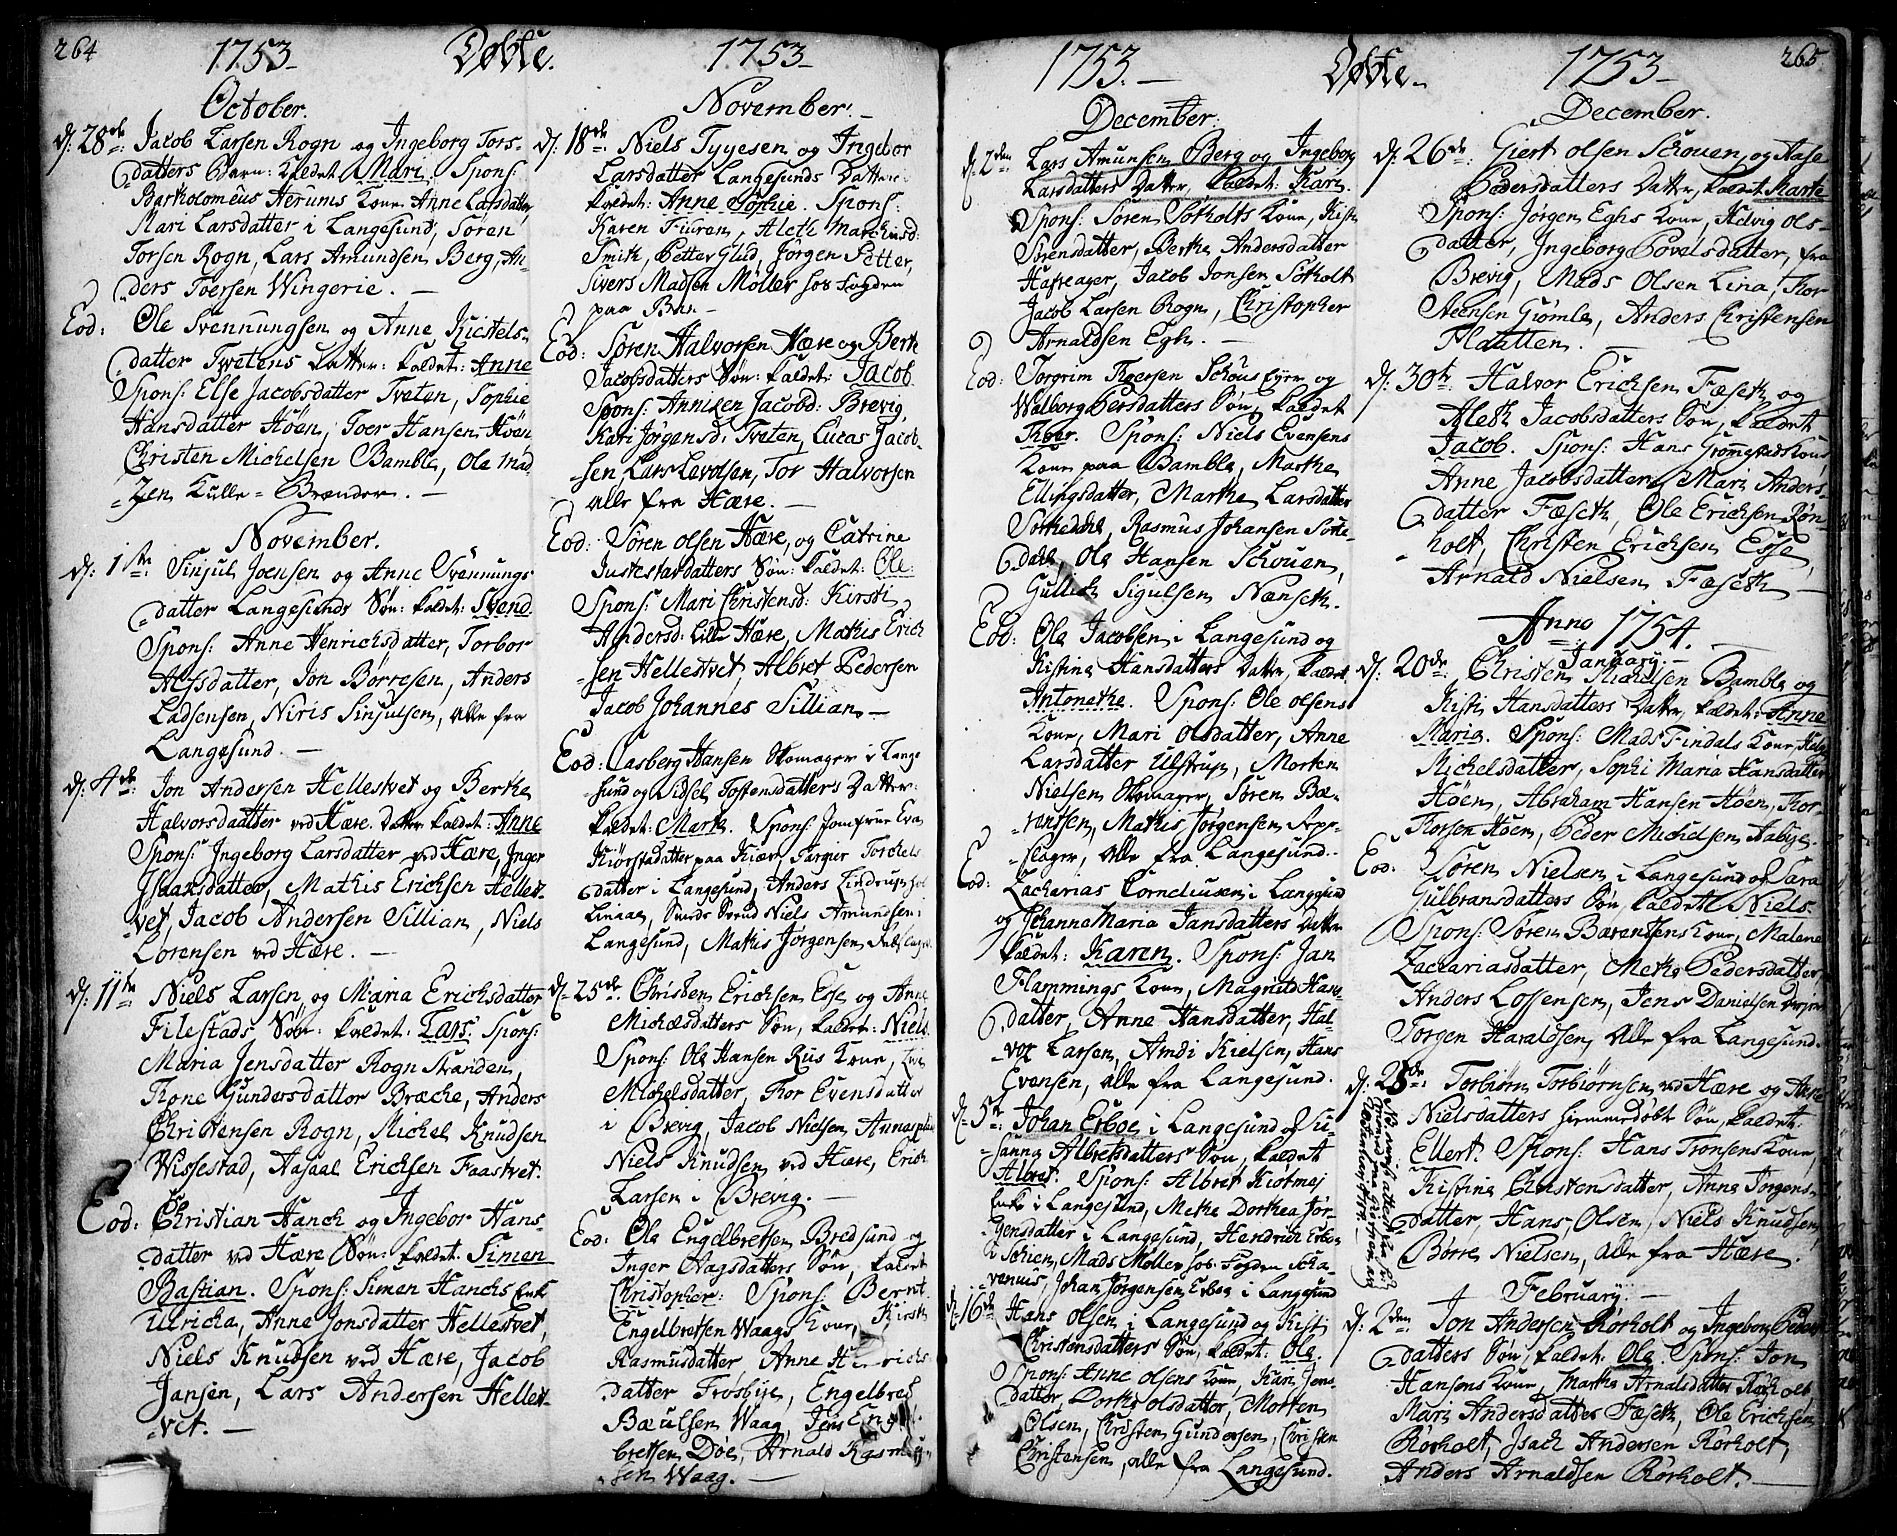 264
1753 Døbte. 1753
October.
d: 28de: Jacob Larsen Rogn og Ingeborg Tors-
datters Barn: kaldet Mari. Spons:
Bartholomeus Herums Kone, Anne Larsdatter
Mari Larsdatter i Langesund, Søren
Torsen Rogn, Lars Amundsen Berg, An-
ders Iversen Wingerie. –
Eod: Ole Svennungsen og Anne Kiestels-
datter Tvetens datter: kaldet: Anne
Spons: Else Jacobsdatter Tveten, Sophie
Hansdatter Høen, Toer Hansen Høen
Christen Michelsen Bamble, Ole Mad
-zen Kulle-Brænder. –
November.
d: 1ste: Sinjul Joensen og Anne Svennungs
datter Langesunds Søn: kaldet: Svend
Spons: Anne Henrichsdatter, Torbor
Alfsdatter, Jon Børresen, Anders
Ladsensen, Niris Sinjulsen, alle fra
Langesund. –
d: 4de: Jon Andersen Hellestvet og Berthe
Halvorsdatter ved Hære. datter kaldet: Anne
Spons: Ingeborg Larsdatter ved Hære, Inger
Isaaksdatter, Mathis Erichsen Hellest-
vet, Jacob Andersen Tillian, Niels
Lorensen ved Hære. –
d: 11te Niels Larsen og Maria Erichsdatter
Filestads Søn: kaldet: Lars. Spons:
Maria Jensdatter Rogn Stranden,
Tone Gundersdatter Bræche, Anders
Christensen Rogn, Michel Knudsen
Wissestad, Aasaal Erichsen Faastvet.
Eod: Christian Hanck og Ingebor Hans-
datter ved Hære Søn: kaldet: Simen
Bastian. Spons: Simen Hancks Enke
Ulricha, Anne Jonsdatter Hellestvet,
Niels Knudsen ved Hære, Jacob
Jansen, Lars Andersen Hellest-
vet. –
November. –
d: 18de: Niels Tyyesen og Ingebor
Larsdatter Langesunds Datter:
kaldet: Anne Sophie. Spons:
Karen Furen, Aleth Marchusd:
Smith, Petter Glud, Jørgen Petter,
Sivers Madsen Møller hos Fogden
paa Bræ. –
Eod: Søren Halvorsen Hære og Berth
Jacobsdatters Søn: kaldet: Jacob
Spons: Anniken Jacobd: Brevig,
Kari Jørgensd: Tveten, Lucas Jacob-
sen, Lars Levolsen, Tor Halvorsen
alle fra Hære. –
Eod: Søren olsen Hære, og Catrine
Justesdatters Søn: kaldet: Ole:
Spons: Mari Christensd: Kirsti
Andersd: Lille Hære, Mathis Erich
-sen Hellestvet, Albret Pedersen
Jacob Johannes Tillian –
Eod: Casberg Hansen Skomager i Lange
sund og Sidsel Tostensdatters Datter:
kaldet: Marth. Spons: Jomfrue Eva
Kiørstdatter paa Kiær, Targier Torchels
datter i Langesund, Anders Lindrup hos
Linaae, Svend Niels Amundsen i
Langesund, Mathis Jørgensen
d: 25de: Christen Erichsen Esse og Anne
Michelsdatters Søn, kaldet: Niels
Spons: Ole Hansen Rus Kone,
Michelsdatter, Tor Evensdatter
i Brevig, Jacob Nielsen,
Niels Knudsen ved Hære, Erich
Larsen i Brevig. –
Eod: Ole Engelbretsen Bredsund og
Inger Aagsdatters Søn, kaldet
Christopher: Spons: Bernt
Engelbretsen Waags Kone, Kirsth
Rasmusdatter, Anne Henrichs-
datter Trosbye, Engelbret
Bæulsen Waag, Jens Engel-
bretsen Doe, Arnald Rasmus-
sen Waag. –
265
1753. – Døbte. 1753 –
December:
d: 2den Lars Amunsen Berg og Ingeborg
Larsdatters Datter, kaldet: Kari.
Spons: Søren Søtholts Kone, Kisti
Sørensdatter, Berthe Andersdatter
Hafreager, Jacob Jonsen Søtholt
Jacob Larsen Rogn, Christopher
Arnaldsen Egh. –
Eod: Torgrim Thoersen Schous Eyre og
Walborg Persdatters Søn, kaldet
Thoer. Spons: Niels Evensens
Kone paa Bamble, Marthe
Ellingsdatter, Marthe Larsdatter
Sortedahl, Rasmus Johansen Sorte-
dahl, Ole Hansen Schouen,
Gullich Sigulsen Nænseth.
Eod: Ole Jacobsen i Langesund og
Kistine Hansdatters Datter, kaldet
Antonethe. Spons: Ole olsens
Kone, Mari Olsdatter, Anne
Larsdatter Ulstrup, Morten
Nielsen Skomager, Søren Bæ-
rentsen, Mathis Jørgensen Arp-
slager, alle fra Langesund.
Eod: Zacharias Corneliusen i Langesund
og Johanna Maria Jansdatters Datter
kaldet: Karen. Spons: Jan
Flammings Kone, Magnild Hans-
datter, Anne Hansdatter, Hal-
vor Larsen, Amdi Kielsen, Hans
Evensen, alle fra Langesund.
d: 5te: Johan Erboe i Langesund og Su-
sanna Albretsdatters Søn, kaldet
Albret. Spons: Albret Kiotmej
Enke i Langesund, Mette Dorthea Jør-
gensdatter i Langesund, Hendrich Erboe
i Schien, Mads Møller hos Fogden Scha-
venius, Johan Jørgensen Erboe i Langesund
d: 16de Hans Olsen i Langesund og Kisti
Christensdatters Søn, kaldet: Ole.
Spons: Anne olsens Kone, Kari Jens-
datter, Dorthe Olsdatter, Morten
Olsen, Christen Gundersen, Christen
Christensen, alle fra Langesund.
December.
d: 26de: Giert olsen Schouen, og Aase
Pedersdatters Datter, kaldet Marthe
Spons: Jørgen Eghs Kone, Helvig ols-
datter, Ingeborg Povelsdatter, fra
Brevig, Mads Olsen Lina, Tor
Steensen Giømle, Anders Christensen
Flaatten. –
d: 30te Halvor Erichsen Fæseth og
Aleth Jacobsdatters Søn, kaldet
Jacob. Spons: Hans Grømstads Kone,
Anne Jacobsdatter, Mari Anders-
datter Fæseth, Ole Erichsen Røn-
holt, Christen Erichsen Esse,
Arnald Nielsen Fæseth –
Anno 1754. –
January: –
d: 20de: Christen Michelsen Bamble og
Kisti Hansdatters Datter, kaldet: Anne
Maria. Spons: Mads Findals Kone,
Michelsdatter, Sophi Maria Hansdatter
Høen, Abraham Hansen Høen, Tor
Torsen Høen, Peder Michelsen Aabye.
Eod: Søren Nielsen i Langesund og Sara
Gulbransdatters Søn, kaldet Niels.
Spons: Søren Bærentsens Kone, Malene
Zachariasdatter, Methe Pedersdatter,
Anders Lossensen, Jens Danielsen
Torgen Haraldsen, alle fra Langesund.
d: 28de: Torbiørn Torbiørnsen ved Hære og Anne
Nielsdatters hiemmedøbt Søn, kaldet.
Ellert. Spons: Hans Tronsens Kone,
Kistine Christensdatter, Anne Jørgens-
datter, Hans Olsen, Niels Knudsen,
Børre Nielsen, alle fra Hære.
February: –
d: 2den: Jon Andersen Rørholt og Ingebor Peders
datters Søn, kaldet. Ole. Spons: Jon
Hansens Kone, Marthe Arnaldsdatter Rørholt
Mari Andersdatter Fæseth, Ole Erichsen
Rørholt, Isach Andersen Rørholt,
Anders Arnaldsen Rørholt. –